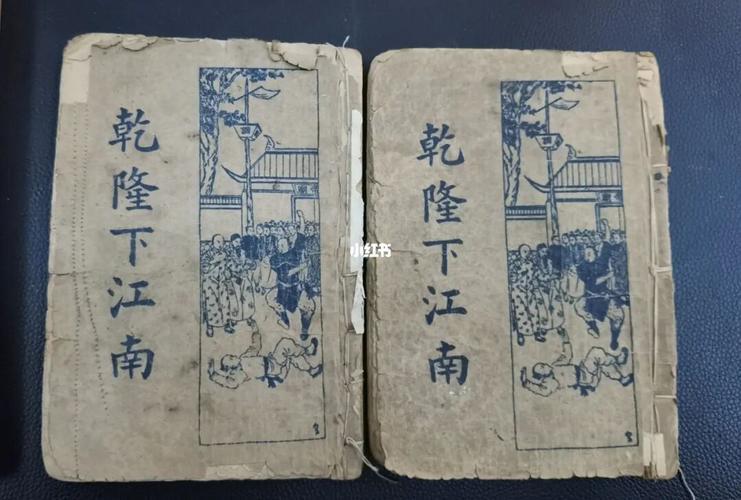 乾隆下江南
乾隆下江南
小红书